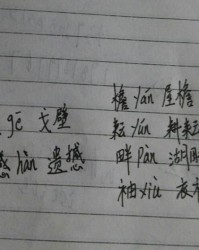 檐 yán 屋檐
gē 戈壁
耘 yún 耕耘
憾 hàn 遗憾
畔 pàn 湖畔
袖 xiù 衣